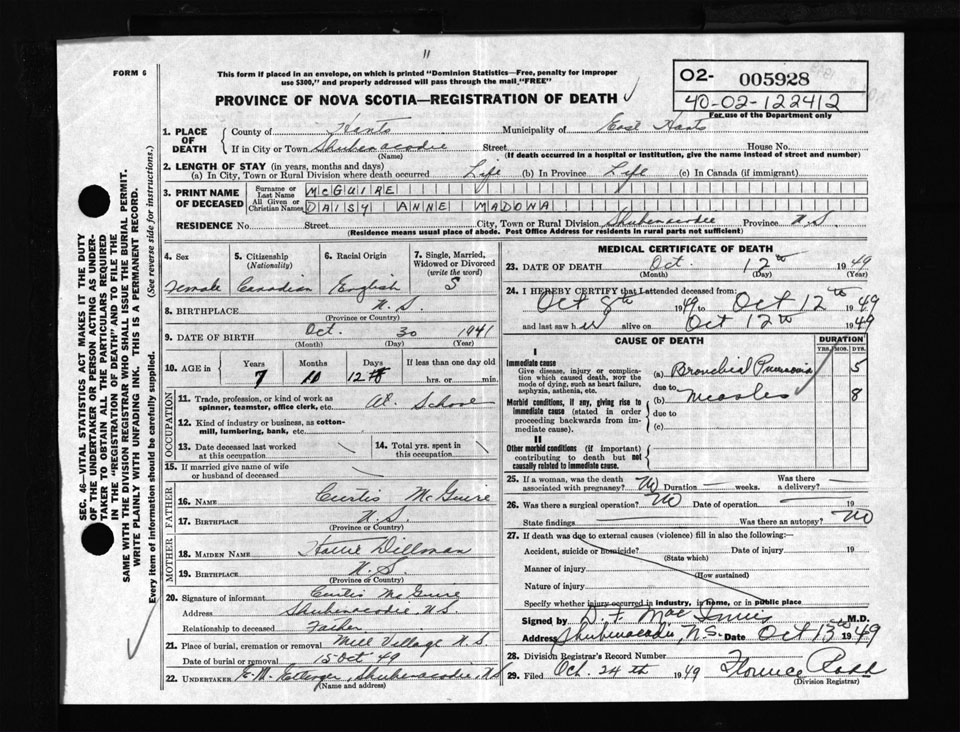 11
FORM 6
This form if placed in an envelope, on which is printed "Dominion Statistics—Free, penalty for improper
use $300," and properly addressed will pass through the mail "FREE"
PROVINCE OF NOVA SCOTIA—REGISTRATION OF DEATH
O2- 005928
40-02-122412
For use of the Department only
1. PLACE OF DEATH
County of Hants Municipality of East Hants
If in City or Town Shubenacadie Street House No.
(Name) (If death occurred in a hospital or institution, give the name instead of street and number)
2. LENGTH OF STAY (in years, months and days)
(a) In City, Town or Rural Division where death occurred Life (b) In Province Life (c) In Canada (if immigrant)
3. PRINT NAME OF DECEASED
Surname or Last Name McGUIRE
All Given or Christian Names DAISY ANNE MADONA
RESIDENCE No. Street City, Town or Rural Division Shubenacadie Province N.S.
(Residence means usual place of abode. Post Office Address for residents in rural parts not sufficient)
4. Sex 5. Citizenship (Nationality) 6. Racial Origin 7. Single, Married, Widowed or Divorced (write the word)
Female Canadian English S
8. BIRTHPLACE N.S.
(Province or Country)
9. DATE OF BIRTH Oct. 30 1941
(Month) (Day) (Year)
10. AGE in Years Months Days If less than one day old
7 12 hrs. or min.
OCCUPATION
11. Trade, profession, or kind of work as spinner, teamster, office clerk, etc. At School
12. Kind of industry or business, as cotton-mill, lumbering, bank, etc.
13. Date deceased last worked at this occupation 14. Total yrs. spent in this occupation
15. If married give name of wife or husband of deceased
FATHER
16. NAME Curtis McGuire
17. BIRTHPLACE N.S.
(Province or Country)
MOTHER
18. MAIDEN NAME Dillman
19. BIRTHPLACE N.S.
(Province or Country)
20. Signature of informant Curtis McGuire
Address Shubenacadie N.S.
Relationship to deceased Father
21. Place of burial, cremation or removal Mill Village N.S.
Date of burial or removal 15 Oct 49
22. UNDERTAKER Shubenacadie, N.S
(Name and address)
MEDICAL CERTIFICATE OF DEATH
23. DATE OF DEATH Oct. 12th 1949
(Month) (Day) (Year)
24. I HEREBY CERTIFY that I attended deceased from:
Oct 8th 1949 to Oct 12th 1949
and last saw her alive on Oct 12th 1949
CAUSE OF DEATH DURATION
YRS. MOS. DYS.
I
Immediate cause
Give disease, injury or complication which caused death, not the mode of dying, such as heart failure, asphyxia, asthenia, etc.
(a) Bronchial Pneumonia 5
due to
Morbid conditions, if any, giving rise to immediate cause (stated in order proceeding backwards from immediate cause).
(b) Measles 8
due to
(c)
II
Other morbid conditions (if important) contributing to death but not causally related to immediate cause.
25. If a woman, was the death associated with pregnancy? No Duration weeks. Was there a delivery?
26. Was there a surgical operation? No Date of operation 19
State findings Was there an autopsy? No
27. If death was due to external causes (violence) fill in also the following:—
Accident, suicide or homicide? Date of injury 19
(State which)
Manner of injury
(How sustained)
Nature of injury
Specify whether injury occurred in industry, in home, or in public place
Signed by MacInnis M.D.
Address Shubenacadie, N.S. Date Oct 13th 1949
28. Division Registrar's Record Number
29. Filed Oct. 24th 1949 Florence
(Division Registrar)
SEC. 46—VITAL STATISTICS ACT MAKES IT THE DUTY
OF THE UNDERTAKER OR PERSON ACTING AS UNDER-
TAKER TO OBTAIN ALL THE PARTICULARS REQUIRED
IN THE "REGISTRATION OF DEATH" AND TO FILE THE
SAME WITH THE DIVISION REGISTRAR WHO SHALL ISSUE THE BURIAL PERMIT.
WRITE PLAINLY WITH UNFADING INK. THIS IS A PERMANENT RECORD.
Every item of information should be carefully supplied. (See reverse side for instructions.)